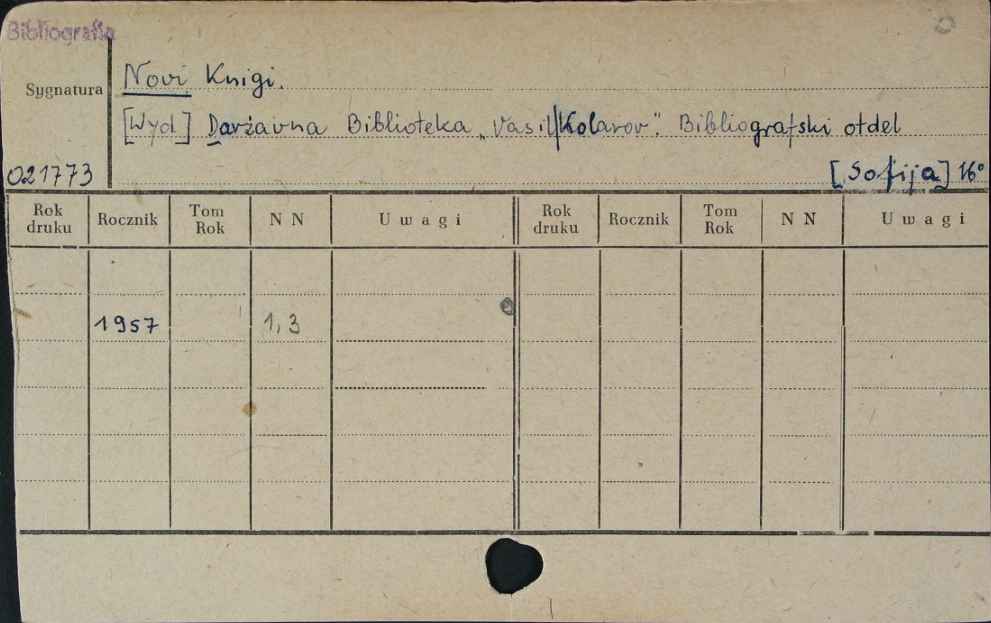 Bibliografia
Sygnatura
Novi Knigi.
[Wyd] Daržavna Biblioteka „Vasil Kolarov". Bibliografski otdel
021773
[Sofija] 16°
Rok druku Rocznik Tom Rok N N Uwagi Rok druku Rocznik Tom Rok N N Uwagi
1957 1, 3